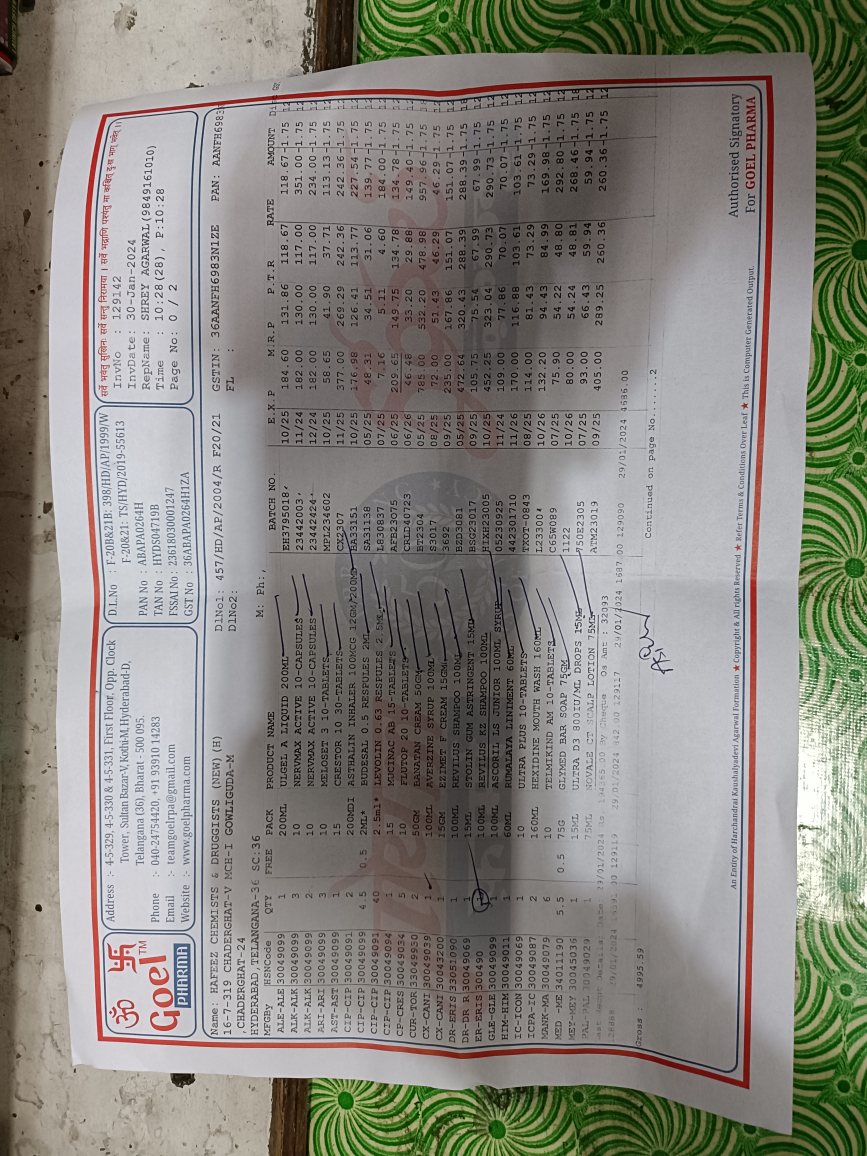 ॐ 卐
Goel TM
PHARMA
Address :- 4-5-329, 4-5-330 & 4-5-331, First Floor, Opp. Clock
Tower, Sultan Bazar-V, Kothi-M, Hyderabad-D,
Telangana (36), Bharat - 500 095.
Phone :- 040-24754420, +91 93910 14283
Email :- teamgoelrpa@gmail.com
Website :- www.goelpharma.com
D.L.No : F-20B&21B: 398/HD/AP/1999/W
F-20&21: TS/HYD/2019-55613
PAN No : ABAPA0264H
TAN No : HYDS04719B
FSSAI No : 23618030001247
GST No : 36ABAPA0264H1ZA
सर्वे भवंतु सुखिनः सर्वे सन्तु निरामया । सर्वे भद्राणि पश्यंतु मा कश्चित् दुःख भाग् भवेद् ।।
InvNo : 129142
InvDate : 30-Jan-2024
RepName: SHREY AGARWAL(9849161010)
Time : 10:28(28), P:10:28
Page No: 0 / 2
Name: HAFEEZ CHEMISTS & DRUGGISTS (NEW) (H) DlNo1: 457/HD/AP/2004/R F20/21 GSTIN: 36AANFH6983N1ZE PAN: AANFH6983
16-7-319 CHADERGHAT-V MCH-I GOWLIGUDA-M DlNo2: FL :
,CHADERGHAT-24
HYDERABAD,TELANGANA-36 SC:36 M: Ph:,
MFGBy HSNCode QTY FREE PACK PRODUCT NAME BATCH NO. E.X.P M.R.P P.T.R RATE AMOUNT Dis GT
ALE-ALE 30049099 1 200ML ULGEL A LIQUID 200ML EH3795018 10/25 184.60 131.86 118.67 118.67-1.75 12
ALK-ALK 30049099 3 10 NERVMAX ACTIVE 10-CAPSULES 23442003 11/24 182.00 130.00 117.00 351.00-1.75 12
ALK-ALK 30049099 2 10 NERVMAX ACTIVE 10-CAPSULES 23442424 12/24 182.00 130.00 117.00 234.00-1.75 12
ARI-ARI 30049099 3 10 MELOSET 3 10-TABLETS MPL234602 10/25 58.65 41.90 37.71 113.13-1.75 12
AST-AST 30049099 1 15 CRESTOR 10 30-TABLETS CX2307 11/25 377.00 269.29 242.36 242.36-1.75 12
CIP-CIP 30049091 2 200MDI ASTHALIN INHALER 100MCG 12GM/200MD BA33151 10/25 176.98 126.41 113.77 227.54-1.75 12
CIP-CIP 30049099 4.5 0.5 2ML* BUDESAL 0.5 RESPULES 2ML SA31138 05/25 48.31 34.51 31.06 139.77-1.75 12
CIP-CIP 30049091 40 2.5ml* LEVOLIN 0.63 RESPULES 2.5ML L830837 07/25 7.16 5.11 4.60 184.00-1.75 12
CIP-CIP 30049094 1 15 MUCINAC AB 15-TABLETS AFB23075 06/25 209.65 149.75 134.78 134.78-1.75 12
CP-CRES 30049034 5 10 FLUTOP 20 10-TABLETS CRLD40723 06/26 46.48 33.20 29.88 149.40-1.75 12
CUR-TOR 33049930 2 50GM BANATAN CREAM 50GM BT2304 05/25 785.00 532.20 478.98 957.96-1.75
CX-CANI 30049039 1 100ML AVERZINE SYRUP 100ML S3017 08/25 72.00 51.43 46.29 46.29-1.75 12
CX-CANI 30043200 1 15GM EZIMET F CREAM 15GM 3692 09/25 235.00 167.86 151.07 151.07-1.75 12
DR-ERIS 33051090 1 100ML REVILUS SHAMPOO 100ML BZD3081 05/25 472.64 320.43 288.39 288.39-1.75 18
DR-DR R 30049069 1 15ML STOLIN GUM ASTRINGENT 15ML BSG23017 09/25 105.75 75.54 67.99 67.99-1.75 12
ER-ERIS 300490 1 100ML REVILUS KZ SHAMPOO 100ML HIXE23005 10/25 452.25 323.04 290.73 290.73-1.75 12
GLE-GLE 30049099 1 100ML ASCORIL LS JUNIOR 100ML SYRUP 05230925 11/24 109.00 77.86 70.07 70.07-1.75 12
HIM-HIM 30049011 1 60ML RUMALAYA LINIMENT 60ML 442301710 11/26 170.00 116.88 103.61 103.61-1.75 12
IC-ICON 30049069 1 10 ULTRA PLUS 10-TABLETS TAOT-0843 08/25 114.00 81.43 73.29 73.29-1.75 12
ICPA-IC 30049087 2 160ML HEXIDINE MOUTH WASH 160ML LZ33004 10/26 132.20 94.43 84.99 169.98-1.75 12
MANK-MA 30049079 6 10 TELMIKIND AM 10-TABLETS C65W089 07/25 75.90 54.22 48.80 292.80-1.75 12
MED -ME 34011190 5.5 0.5 75G GLYMED BAR SOAP 75GM 1122 10/26 80.00 54.24 48.81 268.46-1.75 18
MEY-MEY 30045036 1 15ML ULTRA D3 800IU/ML DROPS 15ML 750E2305 07/25 93.00 66.43 59.94 59.94-1.75 12
PAL-PAL 30049029 1 75ML NOVALE CT SCALP LOTION 75ML ATM23019 09/25 405.00 289.25 260.36 260.36-1.75 12
29/01/2024 By Cheque Os Amt : 32093
129119 29/01/2024 42.00 129117 29/01/2024 1687.00 129090 29/01/2024 4686.00
Gross : 4995.59
Continued on page No.......2
Authorised Signatory
For GOEL PHARMA
An Entity of Harchandrai Kaushalyadevi Agarwal Formation ★ Copyright & All rights Reserved ★ Refer Terms & Conditions Over Leaf ★ This is Computer Generated Output.